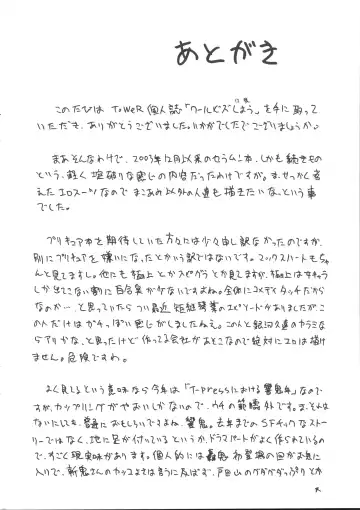 あとがき
このたびは TOWER 個人誌「クールビズしよう」を手に取って
いただき、ありがとうございました。いかがでしたでございましょうか。
まあそんなわけで、2003年12月以来のセラムン本、しかも続きもの
という、軽く掟破りな感じの内容だったわけですが。ま、せっかく考
えたエロスーツなのでまこあみ以外の人達も描きたいな、という事
でした。
プリキュア本を期待していた方々には少々申し訳なかったのですが、
別にプリキュアを嫌いになったとかいう訳ではないです。マックスハートもちゃ
んと見てますし。他にも極上とかスピグラとか見てますが、極上はキチョウ
しか出てこない割に百合臭がないですよね。全体にコメディタッチだから
なのか…と思っていたらつい最近 矩継琴葉のエピソードがありましたが、こ
の人だけはガチっぽい感じがしましたねえ。この人と銀河久遠のカラミな
らアリかな、と思ったけど作ってる会社があそこなので絶対にエロは描け
ません。危険ですわ。
よく見てるという意味なら今年は「T-pressにおける響鬼本」なので
すが、カップリングがやおいしかないので、ウチの範疇外です。ま、それは
ないにしても、普通におもしろいですよね、響鬼。去年までのSFチックなストー
リーではなく、地に足が付いているというか、ドラマパートがよく作られているの
で、すごく現実味があります。個人的には轟鬼 布登場の回がお気に
入りで、斬鬼さんのカッコよさは言うに及ばず、戸田山のグダグダっぷりとか